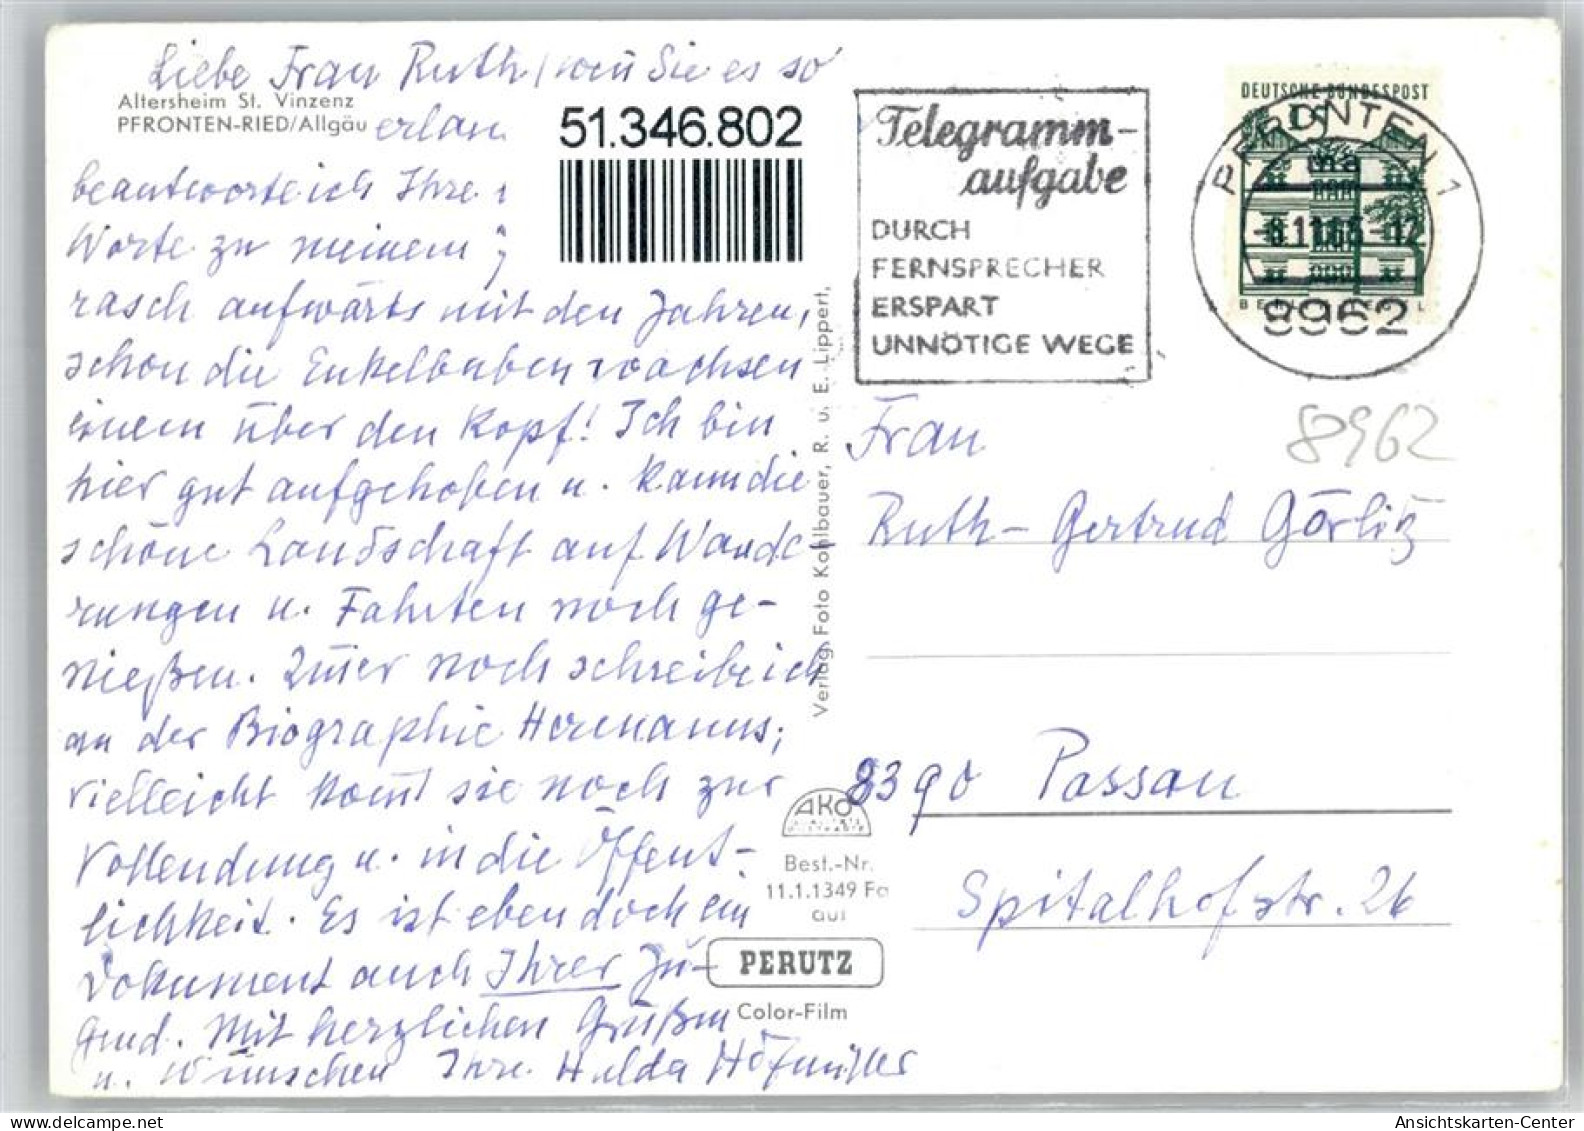 Liebe Frau Ruth, wenn Sie es so
Altersheim St. Vinzenz
PFRONTEN-RIED/Allgäu
erlau
51.346.802
beantworte ich Ihre
Worte zu meinem
rasch aufwärts mit den Jahren,
schon die Enkelbuben wachsen
einem über den Kopf! Ich bin
hier gut aufgehoben u. kann die
schöne Landschaft auf Wande-
rungen u. Fahrten noch ge-
nießen. Immer noch schreibe ich
an der Biographie Hermanns;
vielleicht kommt sie noch zur
Vollendung u. in die Öffent-
lichkeit. Es ist eben doch ein
Dokument auch Ihrer Ju-
gend. Mit herzlichen Grüßen
u. Wünschen Ihre Hulda Hofmiller
Verlag Foto Kohlbauer, R. u. E. Lippert,
AKO
Best.-Nr.
11.1.1349 Fa
auf
PERUTZ
Color-Film
Telegramm-
aufgabe
DURCH
FERNSPRECHER
ERSPART
UNNÖTIGE WEGE
DEUTSCHE BUNDESPOST
PFRONTEN 1
8962
8962
Frau
Ruth-Gertrud Görlitz
8390 Passau
Spitalhofstr. 26
Ansichtskarten-Center